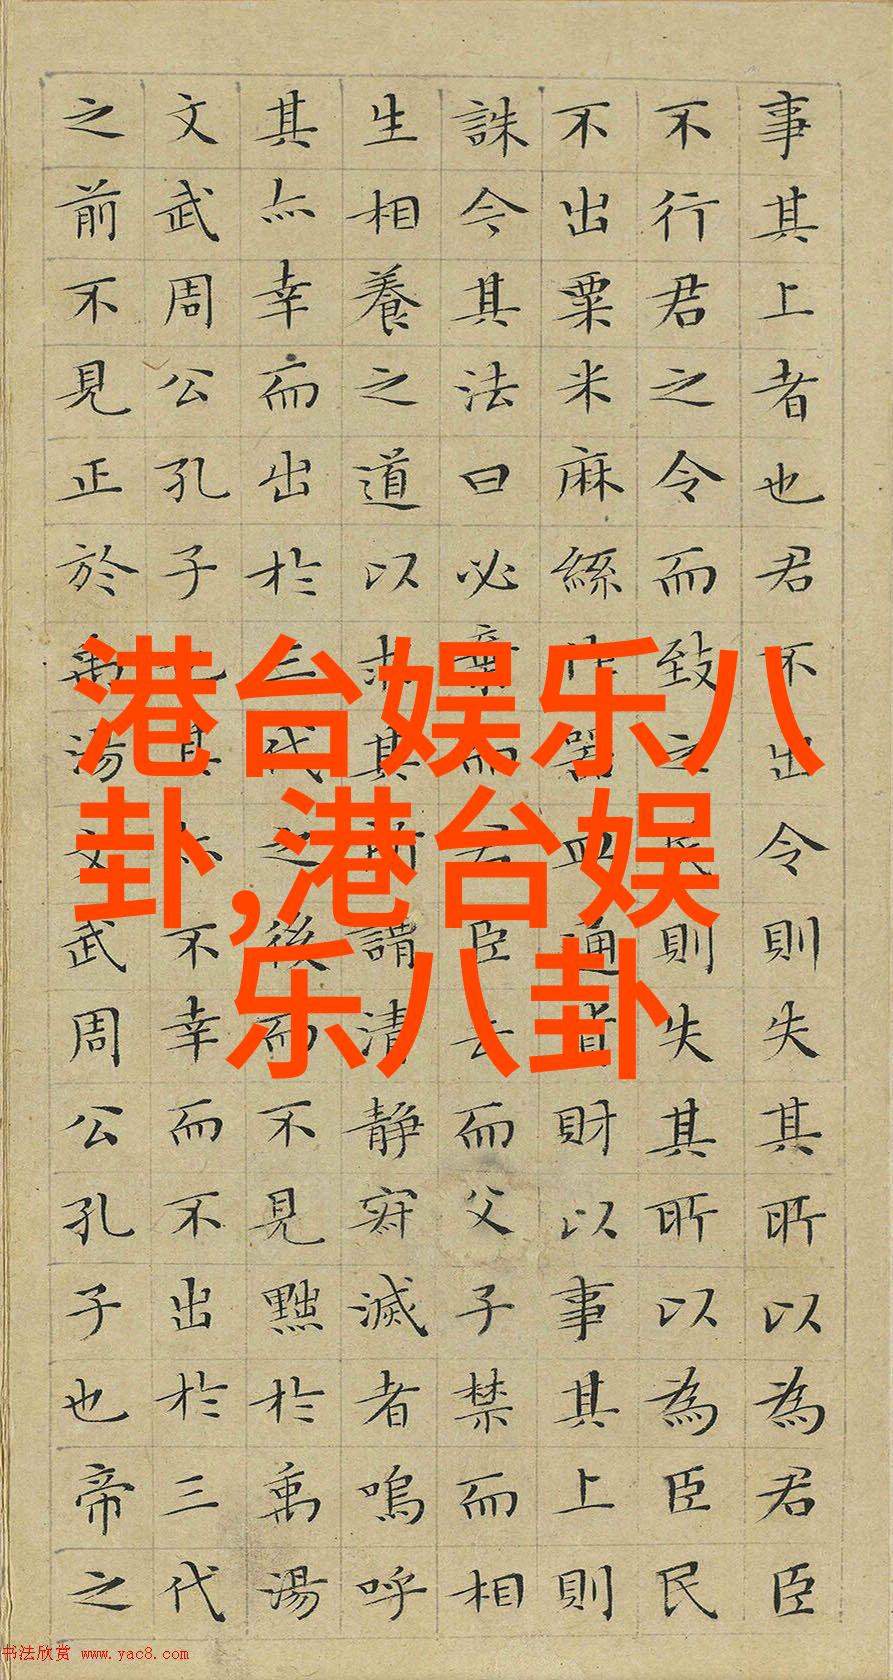 事其上者也君不出令則失其所以為君臣
不行君之令而致之民則失其所以為臣民
不出粟米麻絲作器皿通貨財以事其上則
誅今其法曰必棄而君臣去而父子禁而相
生相養之道以求其所謂清静寂滅者嗚呼
其亦幸而出於三代之後而不見黜於禹湯
文武周公孔子也其亦不幸而不出於三代
之前不見正於禹湯文武周公孔子也帝之
港台娱乐八
卦,港台娱
乐八卦
书法欣赏 www.yac8.com